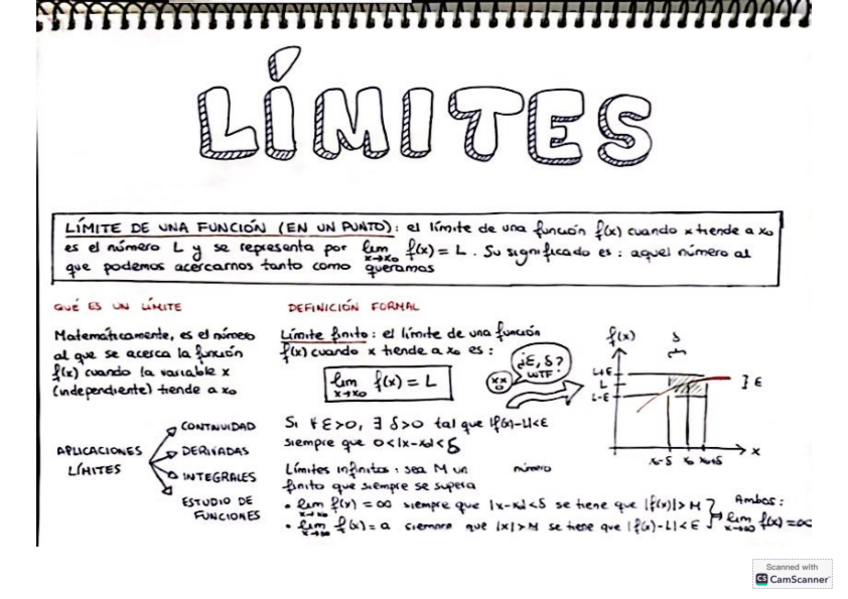 LÍMITES
LÍMITE DE UNA FUNCIÓN (EN UN PUNTO): el límite de una función f(x) cuando x tiende a x₀
es el número L y se representa por lim x→x₀ f(x) = L. Su significado es: aquel número al
que podemos acercarnos tanto como queramos
QUÉ ES UN LÍMITE
Matemáticamente, es el número
al que se acerca la función
f(x) cuando la variable x
(independiente) tiende a x₀
APLICACIONES
LÍMITES
CONTINUIDAD
DERIVADAS
INTEGRALES
ESTUDIO DE
FUNCIONES
DEFINICIÓN FORMAL
Límite finito: el límite de una función
f(x) cuando x tiende a x₀ es:
lim x→x₀ f(x) = L
¿ε, δ?
WTF
xx
o
Si ∀ε>0, ∃ δ>0 tal que |f(x)-L|<ε
siempre que 0<|x-x₀|<δ
Límites infinitos: sea M un número
finito que siempre se supera
• lim x→x₀ f(x) = ∞ siempre que |x-x₀|<δ se tiene que |f(x)|>M
• lim x→∞ f(x) = a siempre que |x|>M se tiene que |f(x)-L|<ε
Ambos:
lim x→∞ f(x) = ∞
f(x)
δ
L+ε
L
L-ε
ε
x₀-δ x₀ x₀+δ
x
Scanned with
CS CamScanner